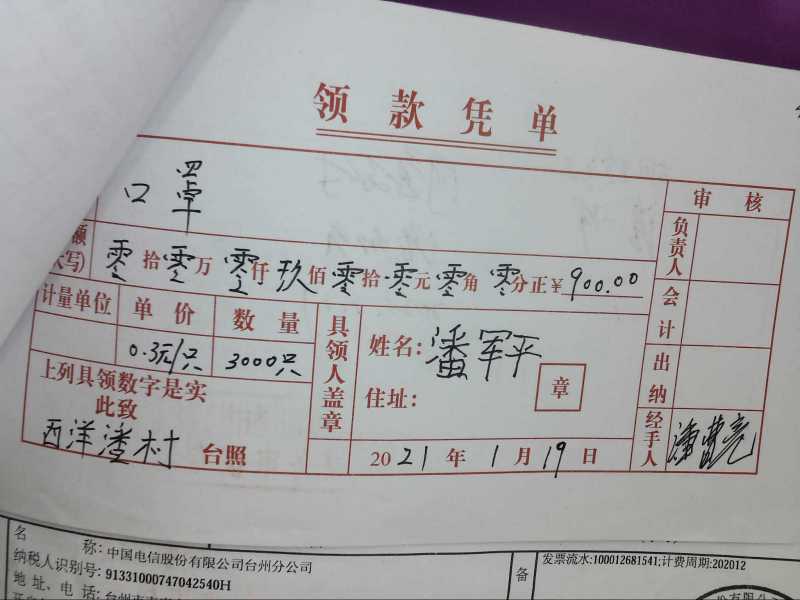 领款凭单
口罩
审核
额
大写)
零拾零万零仟玖佰零拾零元零角零分正¥900.00
负责人
计量单位 单价 数量
0.3元/只 3000只
会计
具领人盖章
姓名:潘军平
住址:
章
出纳
上列具领数字是实
此致
西洋潘村 台照
2021年1月19日
经手人
名 称:中国电信股份有限公司台州分公司
纳税人识别号:91331000747042540H
地址、电话:
备
发票流水:100012681541;计费周期:202012